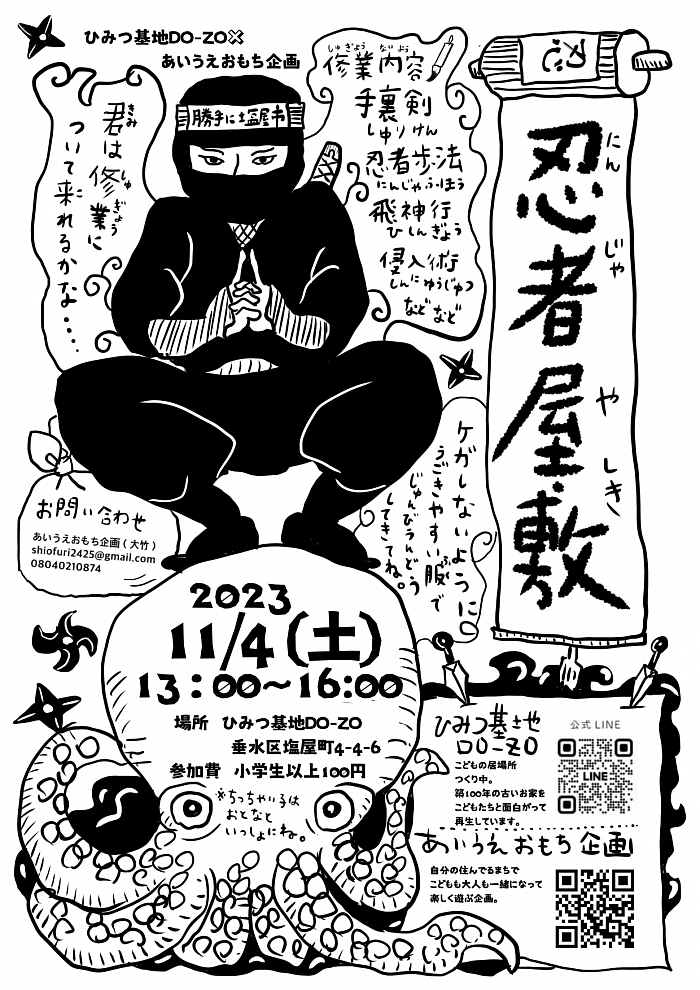 ひみつ基地DO-ZO×
あいうえおもち企画
忍者屋敷
にん
じゃ
や
しき
忍
勝手に塩屋市
君は修業に
きみ
しゅぎょう
ついて来れるかな・・・
こ
修業内容
しゅぎょう ないよう
手裏剣
しゅりけん
忍者歩法
にんじゃふほう
飛神行
ひしんぎょう
侵入術
しんにゅうじゅつ
などなど
ケガしないように
うごきやすい服で
じゅんびうんどう
してきてね。
お問い合わせ
あいうえおもち企画(大竹)
shiofuri2425@gmail.com
08040210874
2023
11/4(土)
13:00~16:00
場所 ひみつ基地DO-ZO
垂水区塩屋町4-4-6
参加費 小学生以上100円
※ちっちゃい子は
おとなと
いっしょにね。
ひみつ基地
DO-ZO
こどもの居場所
つくり中。
築100年の古いお家を
こどもたちと面白がって
再生しています。
公式LINE
LINE
あいうえおもち企画
自分の住んでるまちで
こどもも大人も一緒になって
楽しく遊ぶ企画。